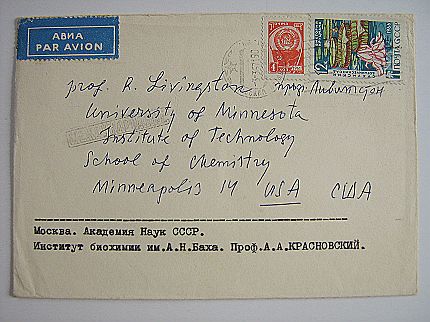 АВИА
PAR AVION
4
12
ПОЧТА СССР
prof. R. Livingston проф. Ливингстон
University of Minnesota
Institute of Technology
School of Chemistry
Minneapolis 14 USA США
Москва. Академия Наук СССР.
Институт биохимии им.А.Н.Баха. Проф.А.А.КРАСНОВСКИЙ.